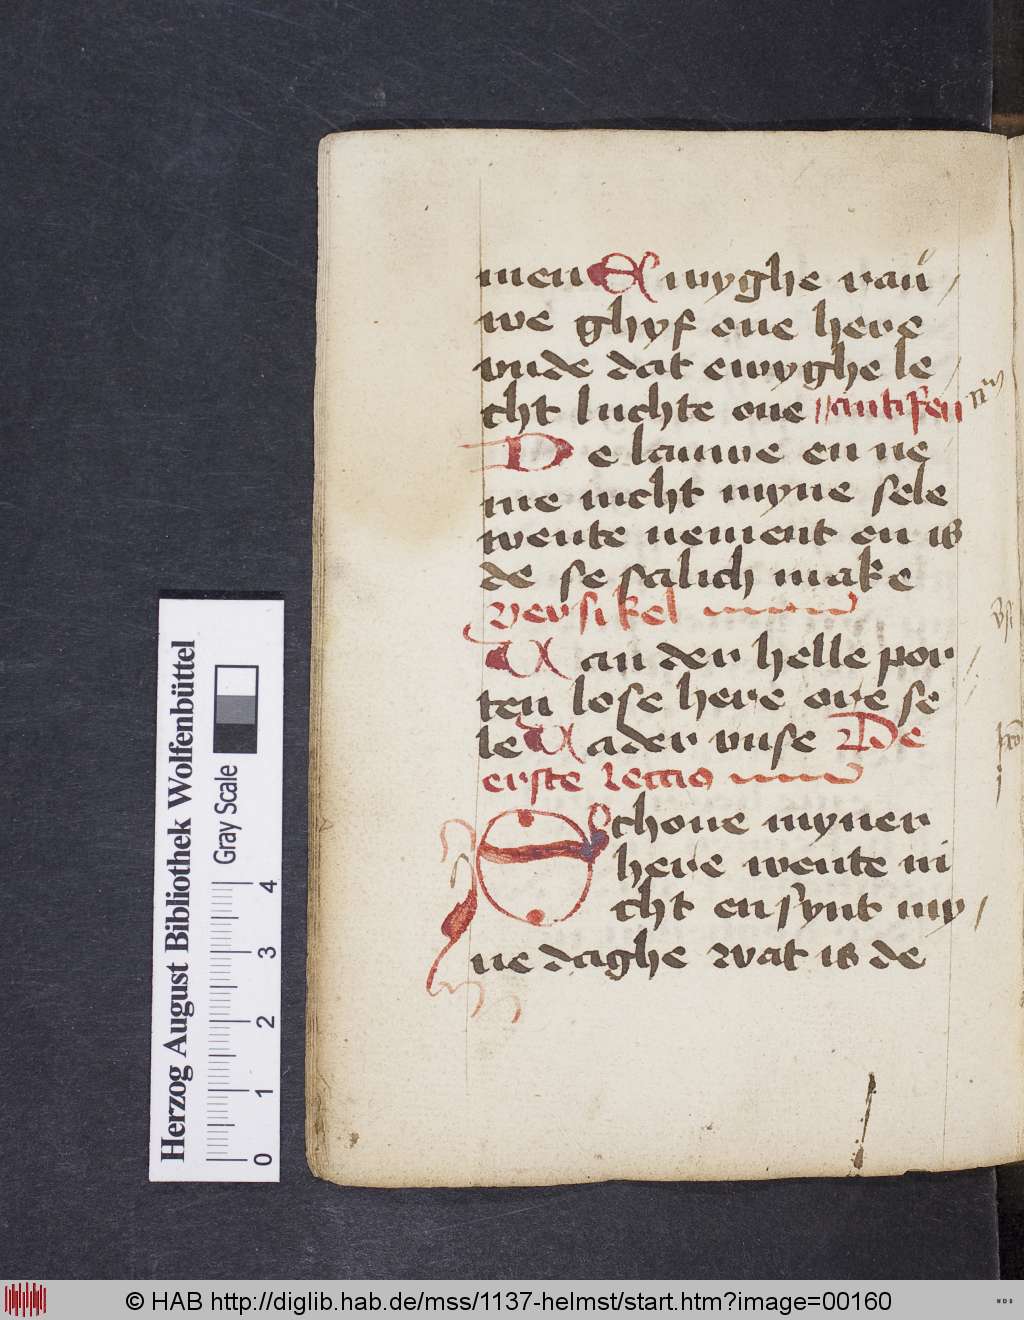 men Ewyghe rau
we ghyf one here
vnde dat ewyghe le
cht luchte one antifen
De lauwe en ne
me nicht myne sele
wente nement en is
de se salich make
versikel
Uan der helle por
ten lose here ore se
le Uader vnse De
erste leccio
Schone myner
here wente ni
cht en synt my
ne daghe wat is de
Herzog August Bibliothek Wolfenbüttel
Gray Scale
0 1 2 3 4
© HAB http://diglib.hab.de/mss/1137-helmst/start.htm?image=00160